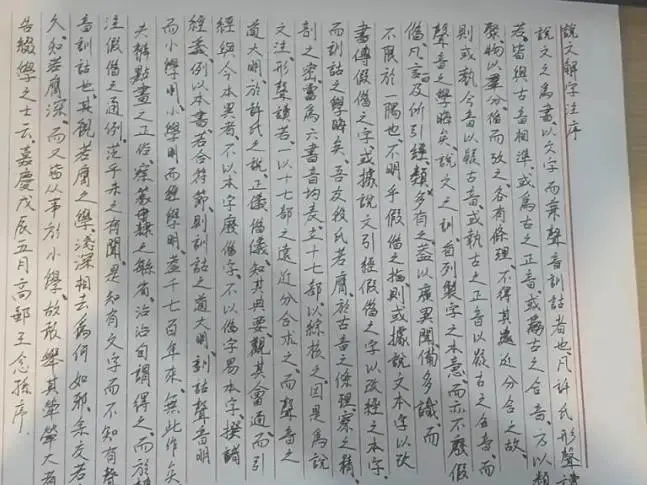 說文解字注序
說文之為書以文字而兼聲音訓詁者也凡許氏形聲讀
若皆與古音相準或為古之正音或為古之合音方以類
聚物以羣分循而攷之各有條理不得其遠近分合之故
則或執今音以疑古音或執古之正音以疑古之合音而
聲音之學晦矣說文之訓首列製字之本意而亦不廢假
借凡言及所引經類多有之蓋以廣異聞備多識而
不限於一隅也不明乎假借之指則或據說文本字以改
書傳假借之字或據說文引經假借之字以改經之本字
而訓詁之學晦矣吾友段氏若膺於古音之條理察之精
剖之密嘗為六書音均表立十七部以綜核之因是為說
文注形聲讀若一以十七部之遠近分合求之而聲音之
道大明於許氏之說正義借義知其典要觀其會通而引
經與今本異者不以本字廢借字不以借字易本字揆諸
經義例以本書若合符節則訓詁之道大明訓詁聲音明
而小學明小學明而經學明蓋千七百年來無此作矣
夫辨點畫之正俗察篆隸之繇省沾沾自謂得之而於轉
注假借之通例茫乎未之有聞是知有文字而不知有聲
音訓詁也其視若膺之學淺深相去為何如邪余交若膺
久知若膺深而又皆從事於小學故敢舉其犖犖大者
告綴學之士云嘉慶戊辰五月高郵王念孫序